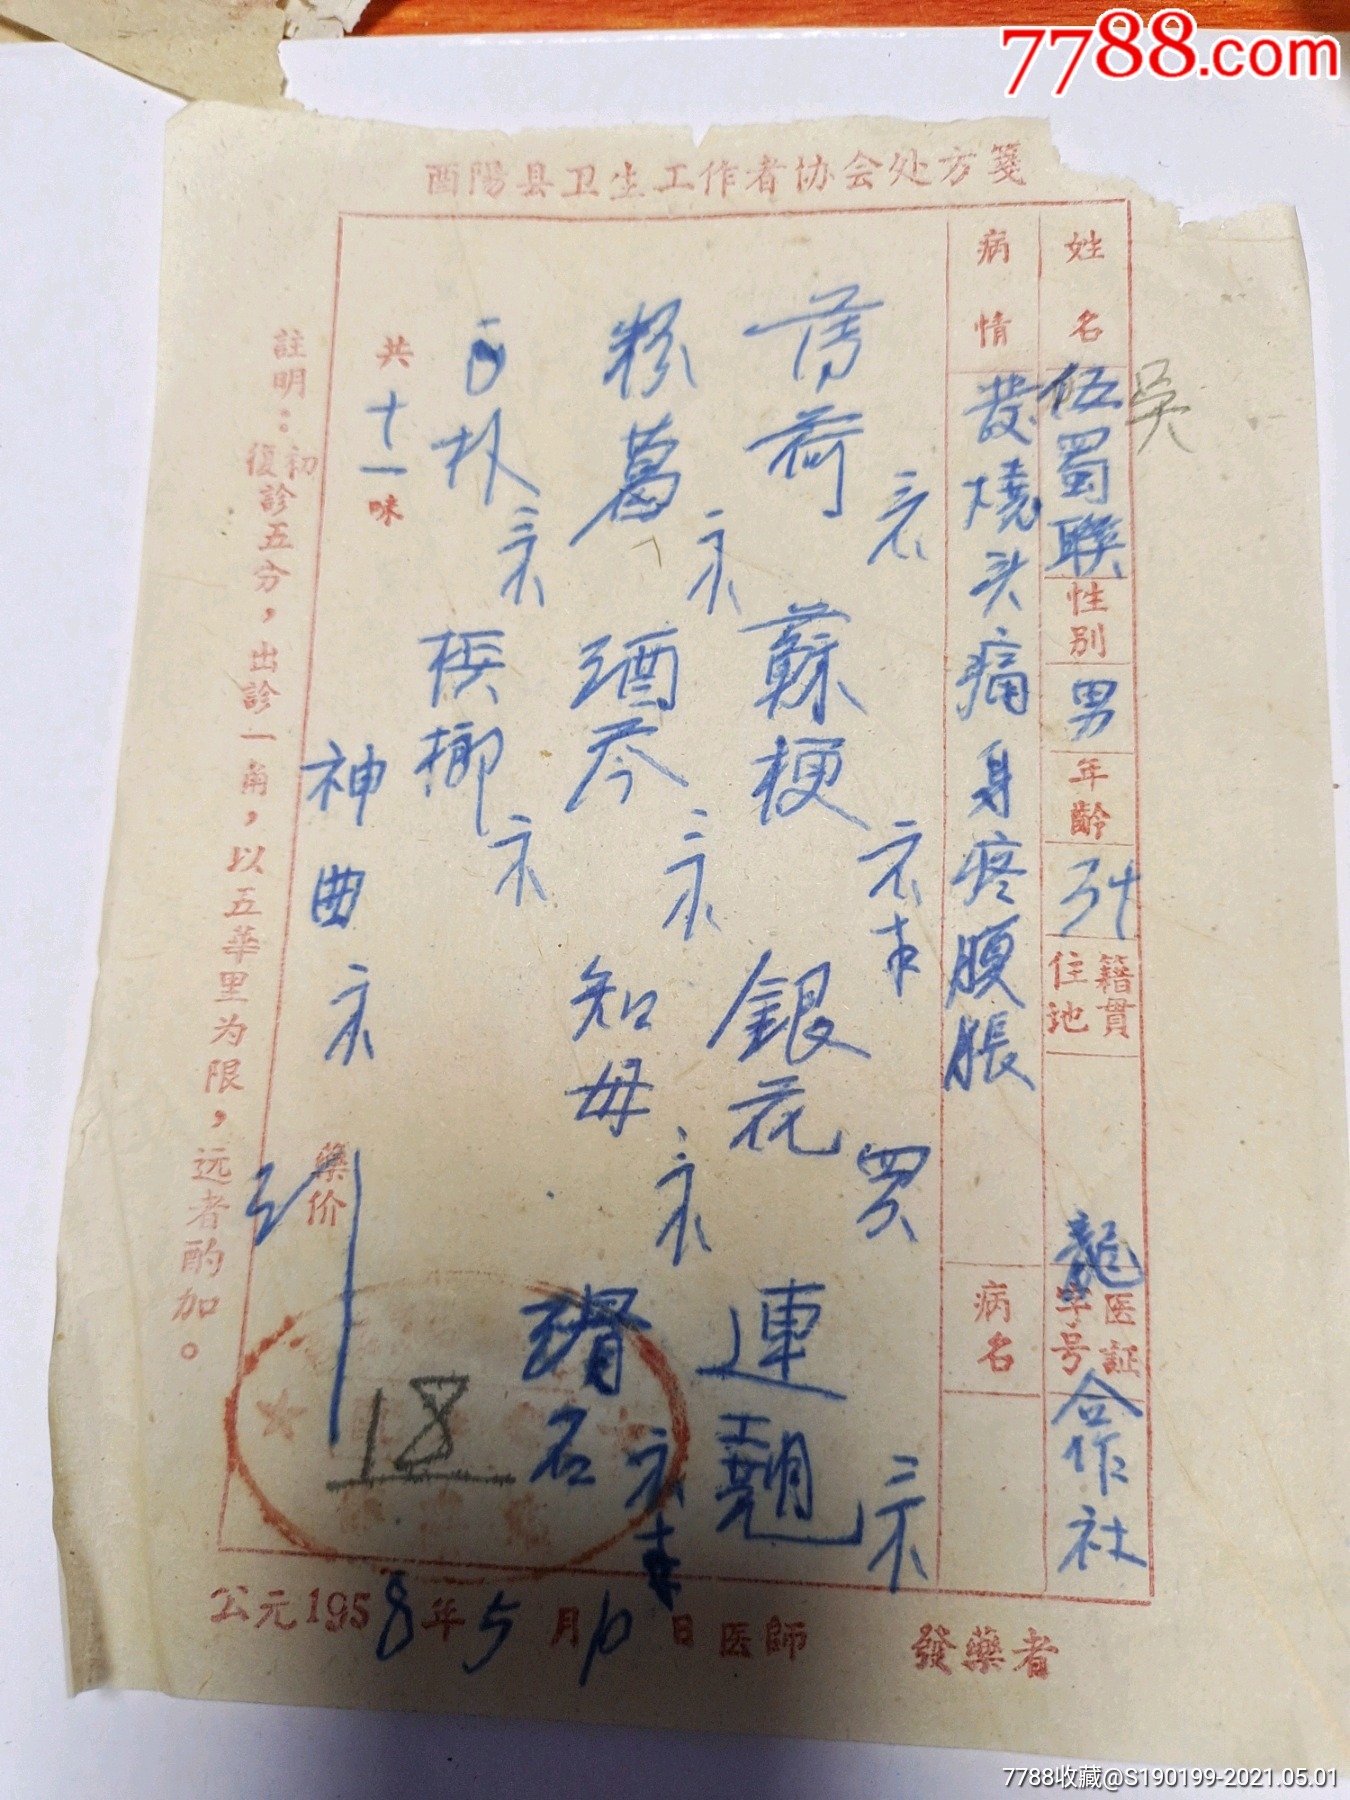 7788.com
酉陽县卫生工作者协会处方箋
姓名 伍蜀联 性别 男 年齡 籍貫住地 龍 医証字号 合作社
吴
病情 發燒头痛身疼腹脹 病名
薄荷 蘇梗 銀花 連翹
粉葛 酒芩 知母 滑石
川朴 槟榔
共十一味
神曲
藥价
18
註明：初復診五分，出診一角，以五華里为限，远者酌加。
公元1958年5月10日医師 發藥者
7788收藏@S190199-2021.05.01